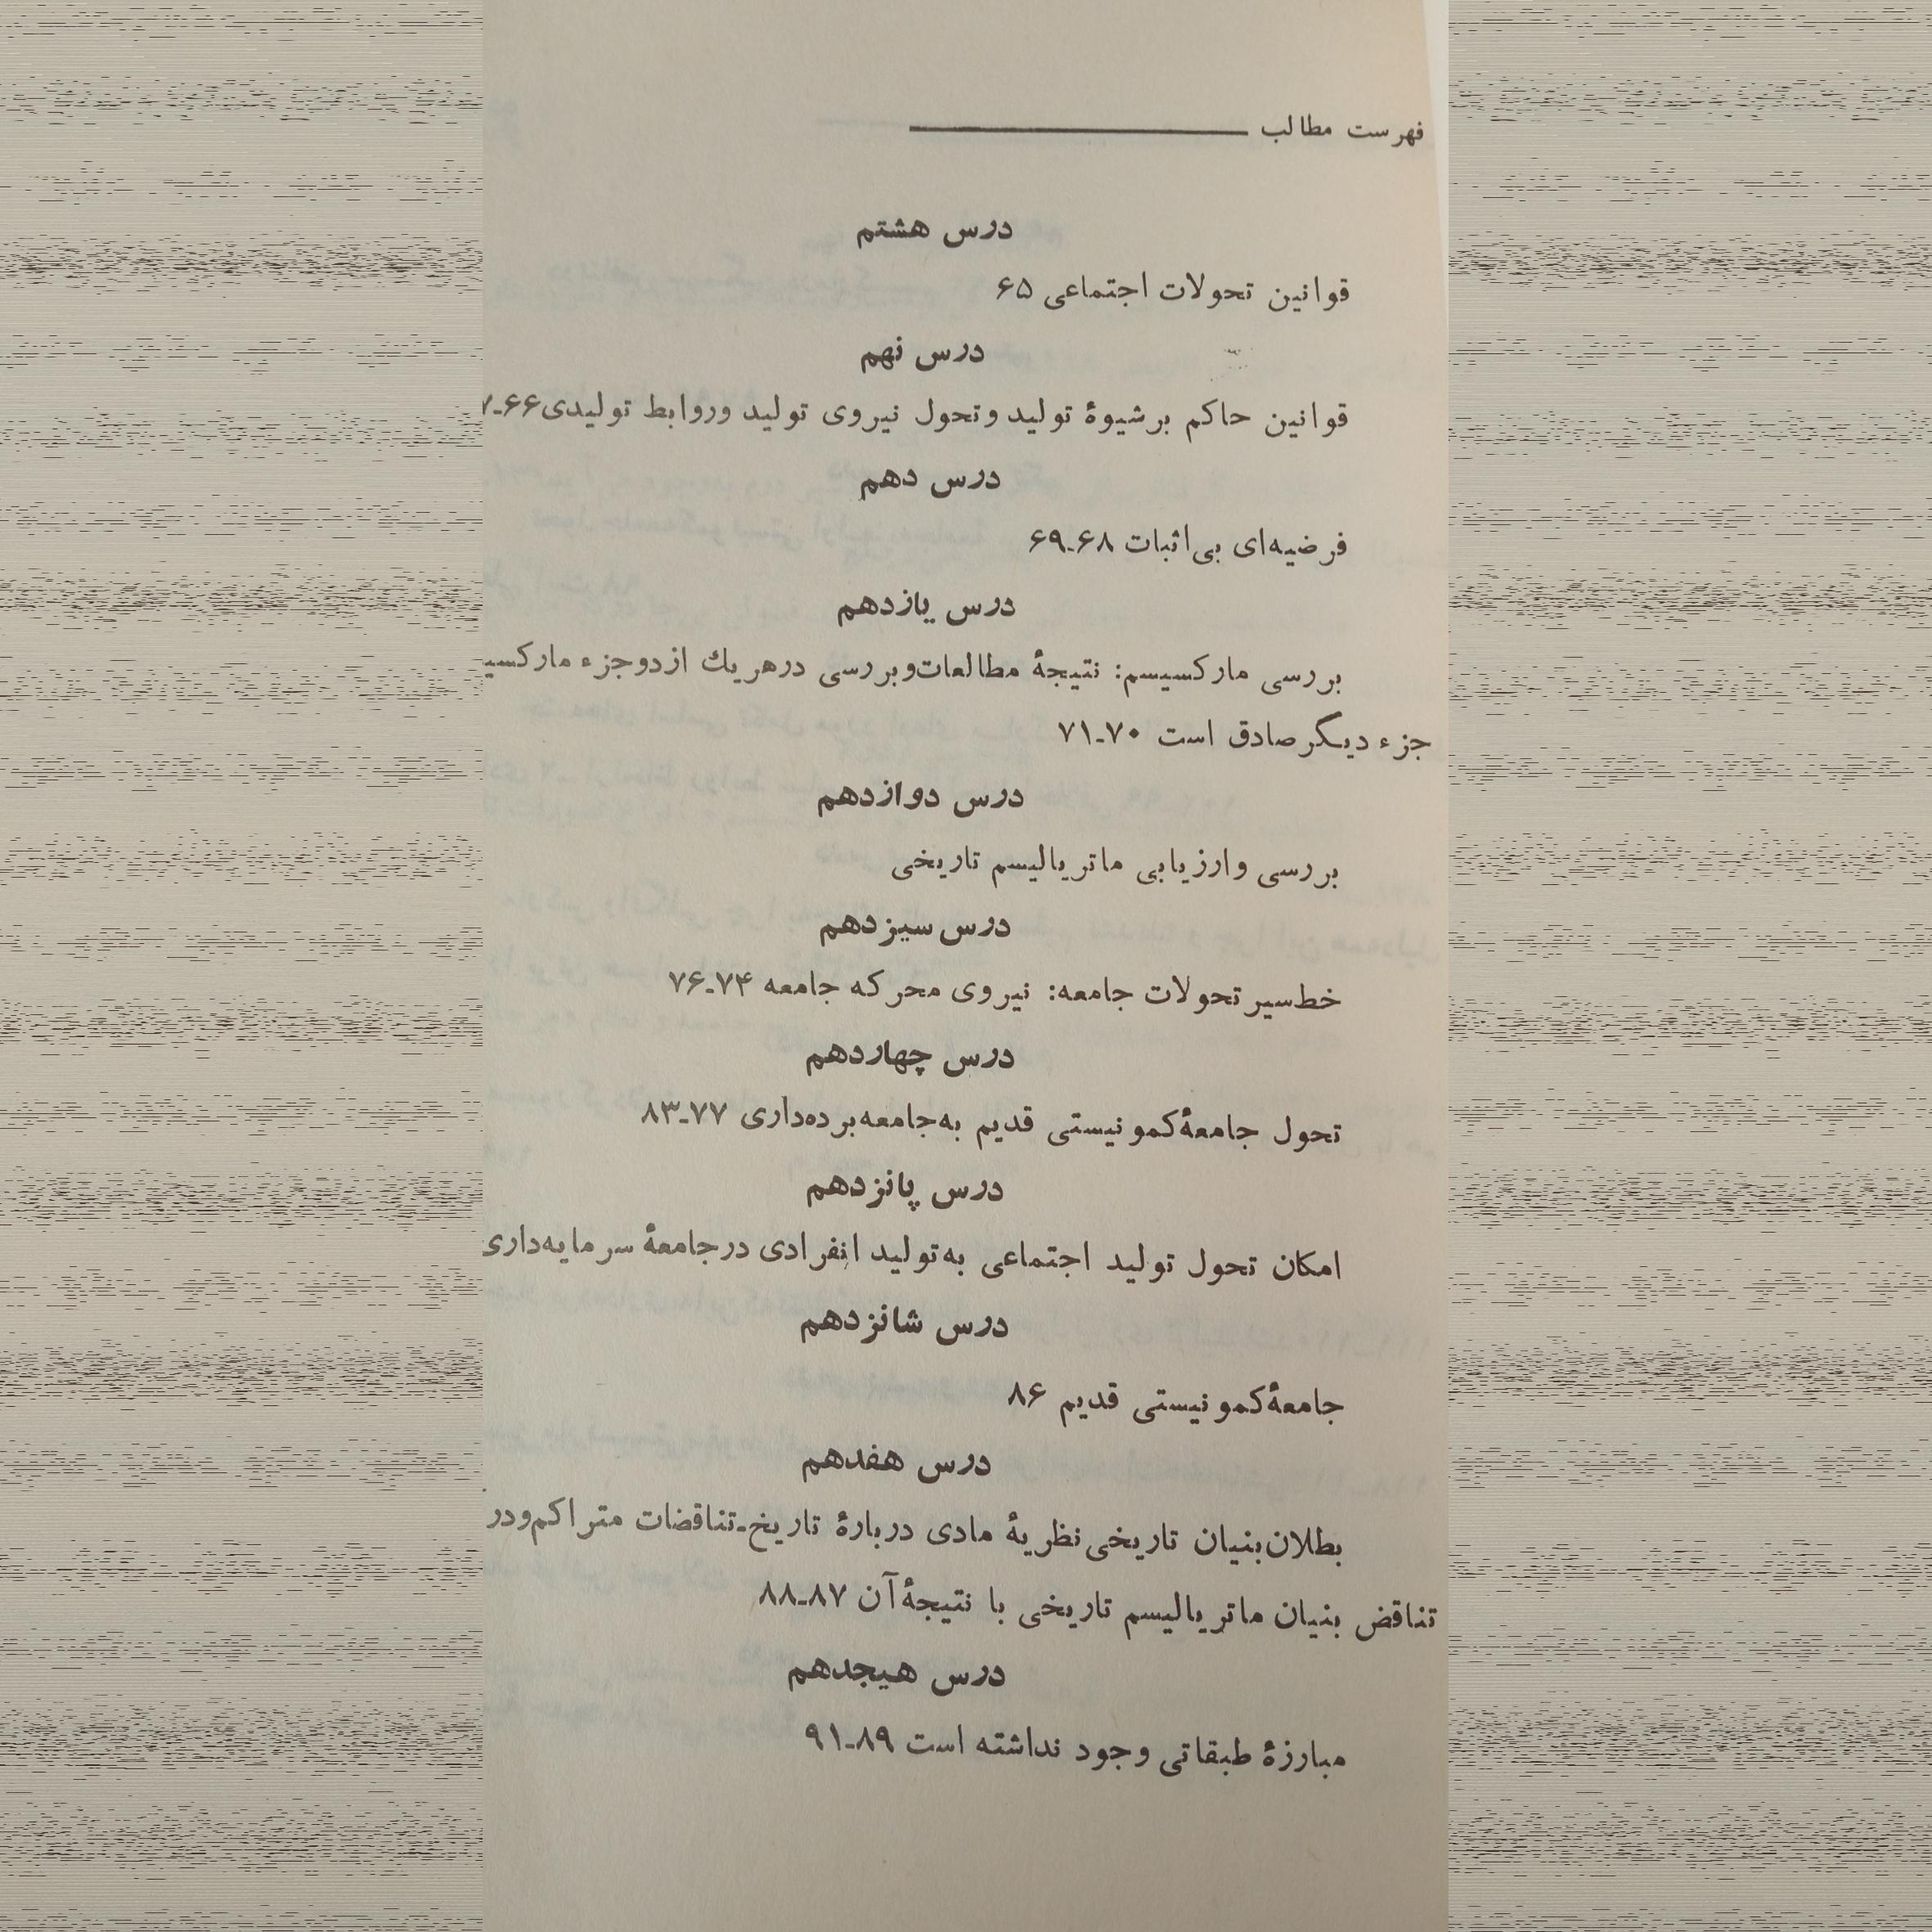 فهرست مطالب
درس هشتم
قوانین تحولات اجتماعی ۶۵
درس نهم
قوانین حاکم برشیوهٔ تولید وتحول نیروی تولید وروابط تولیدی۶۶ـ
درس دهم
فرضیه‌ای بی‌اثبات ۶۸ـ۶۹
درس یازدهم
بررسی مارکسیسم: نتیجهٔ مطالعات‌وبررسی درهریك ازدوجزء
جزء دیگرصادق است ۷۰ـ۷۱
درس دوازدهم
بررسی وارزیابی ماتریالیسم تاریخی
درس سیزدهم
خط‌سیرتحولات جامعه: نیروی محرکه جامعه ۷۴ـ۷۶
درس چهاردهم
تحول جامعهٔ‌کمونیستی قدیم به‌جامعه‌برده‌داری ۷۷ـ۸۳
درس پانزدهم
امکان تحول تولید اجتماعی به‌تولید انفرادی درجامعهٔ سرمایه‌داری
درس شانزدهم
جامعهٔ‌کمونیستی قدیم ۸۶
درس هفدهم
بطلان‌بنیان تاریخی‌نظریهٔ مادی دربارهٔ تاریخ-تناقضات متراکم‌ودر
تناقض بنیان ماتریالیسم تاریخی با نتیجهٔ‌آن ۸۷ـ۸۸
درس هیجدهم
مبارزهٔ طبقاتی وجود نداشته است ۸۹ـ۹۱